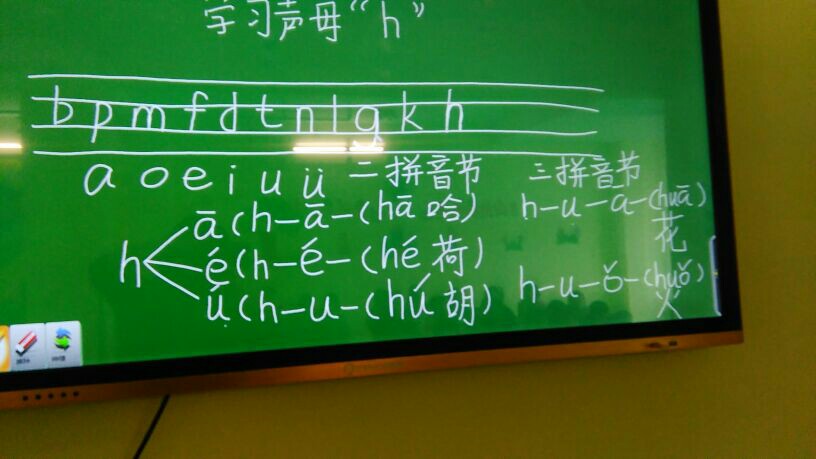 学习声母“h”
b p m f d t n l g k h
a o e i u ü 二拼音节 三拼音节
ā (h-ā-(hā 哈) h-u-a-(huā)
花
h é (h-é-(hé 荷)
ú (h-u-(hú 胡) h-u-ǒ-(huǒ)
火